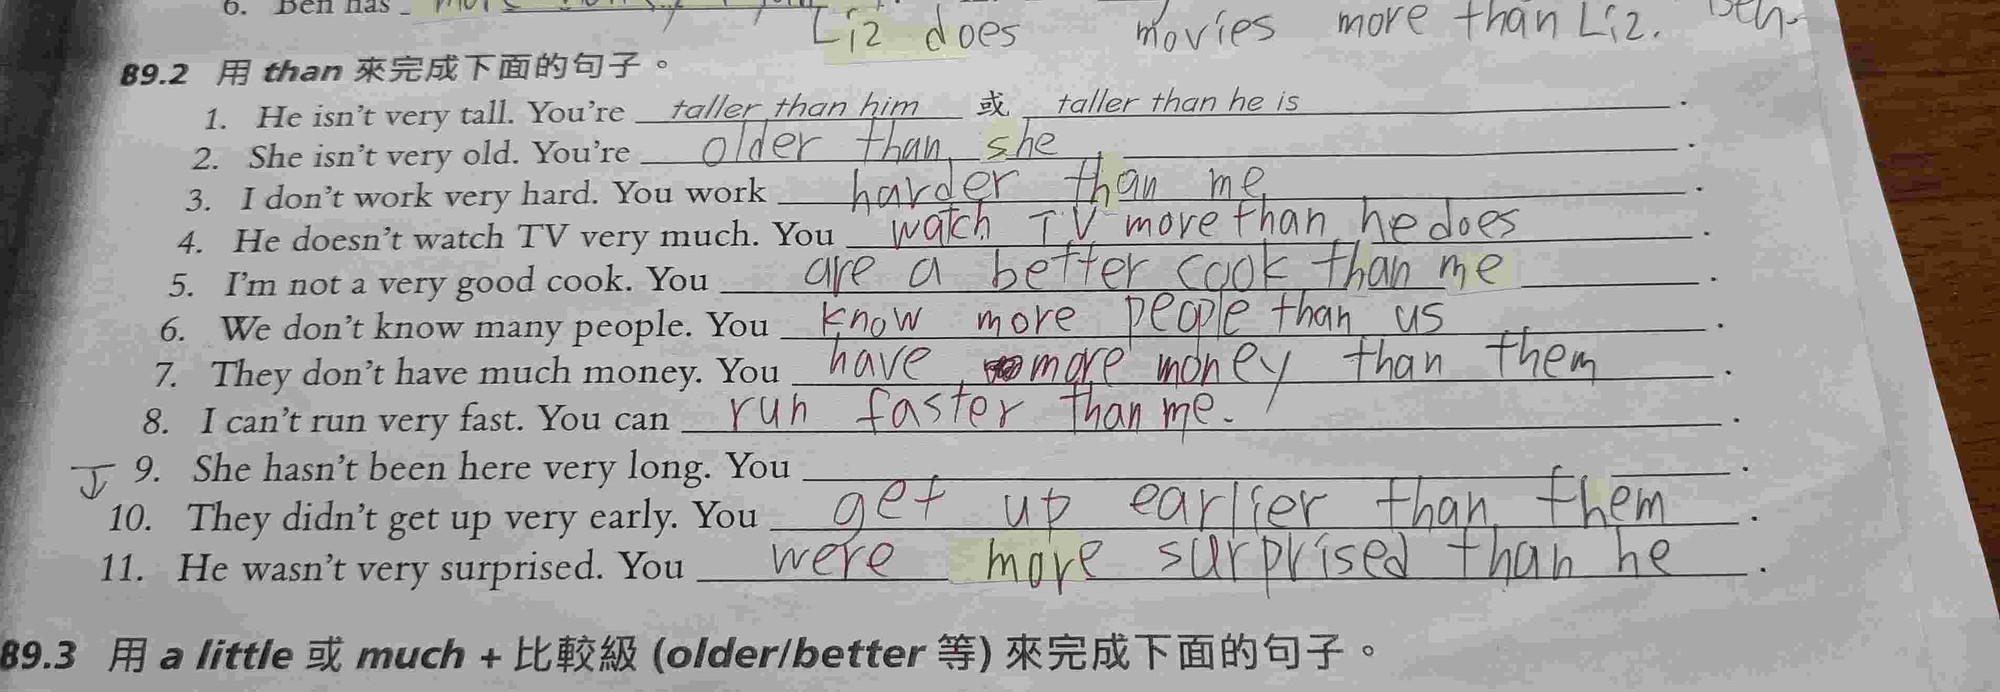 6. Ben has more
Liz does movies more than Liz. Ben
89.2 用 than 來完成下面的句子。
1. He isn't very tall. You're taller than him 或 taller than he is.
2. She isn't very old. You're older than she.
3. I don't work very hard. You work harder than me.
4. He doesn't watch TV very much. You watch TV more than he does.
5. I'm not a very good cook. You are a better cook than me.
6. We don't know many people. You know more people than us.
7. They don't have much money. You have more money than them.
8. I can't run very fast. You can run faster than me. .
9. She hasn't been here very long. You .
10. They didn't get up very early. You get up earlier than them.
11. He wasn't very surprised. You were more surprised than he.
89.3 用 a little 或 much + 比較級 (older/better 等) 來完成下面的句子。